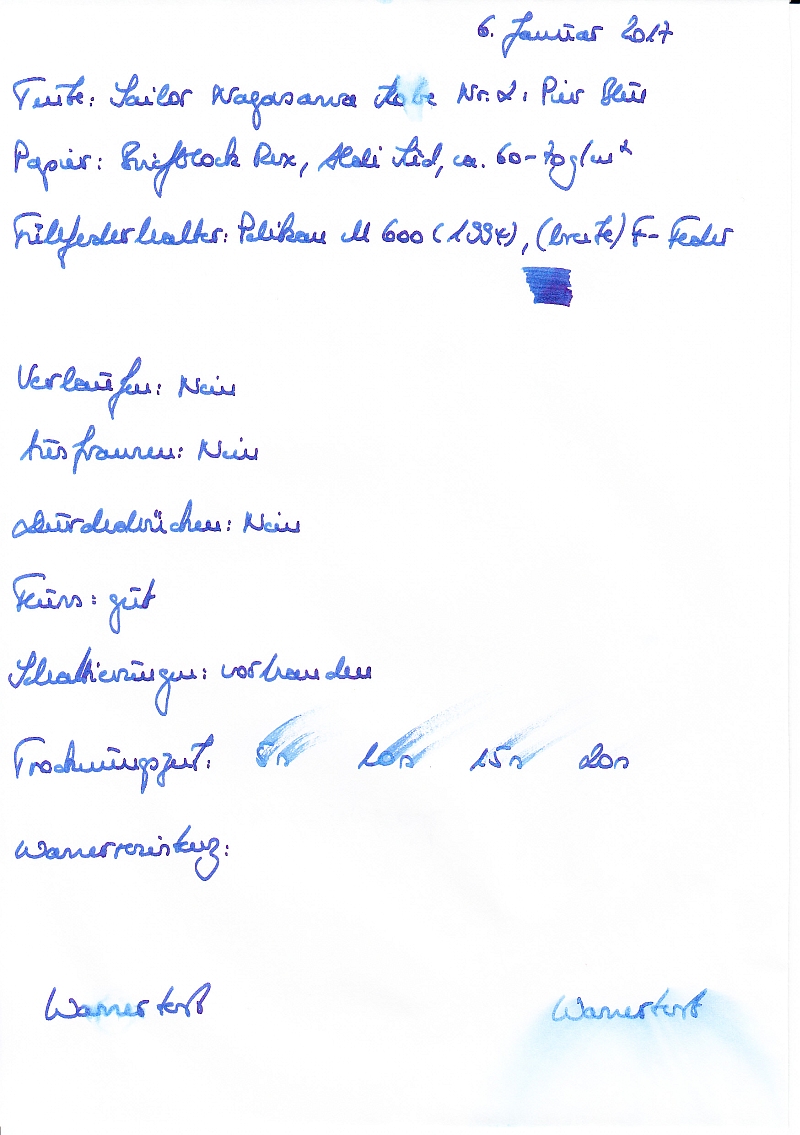 6. Januar 2017
Tinte: Sailor Nagasawa Kobe Nr. 2: Pier Blue
Papier: Briefblock Rex, Aldi Süd, ca. 60-70g/m²
Füllfederhalter: Pelikan M 600 (1994), (breite) F-Feder
Verlaufen: Nein
Ausfransen: Nein
Durchdrücken: Nein
Fluss: gut
Schattierungen: vorhanden
Trocknungszeit: 5s 10s 15s 20s
Wasserresistenz:
Wassertest Wassertest